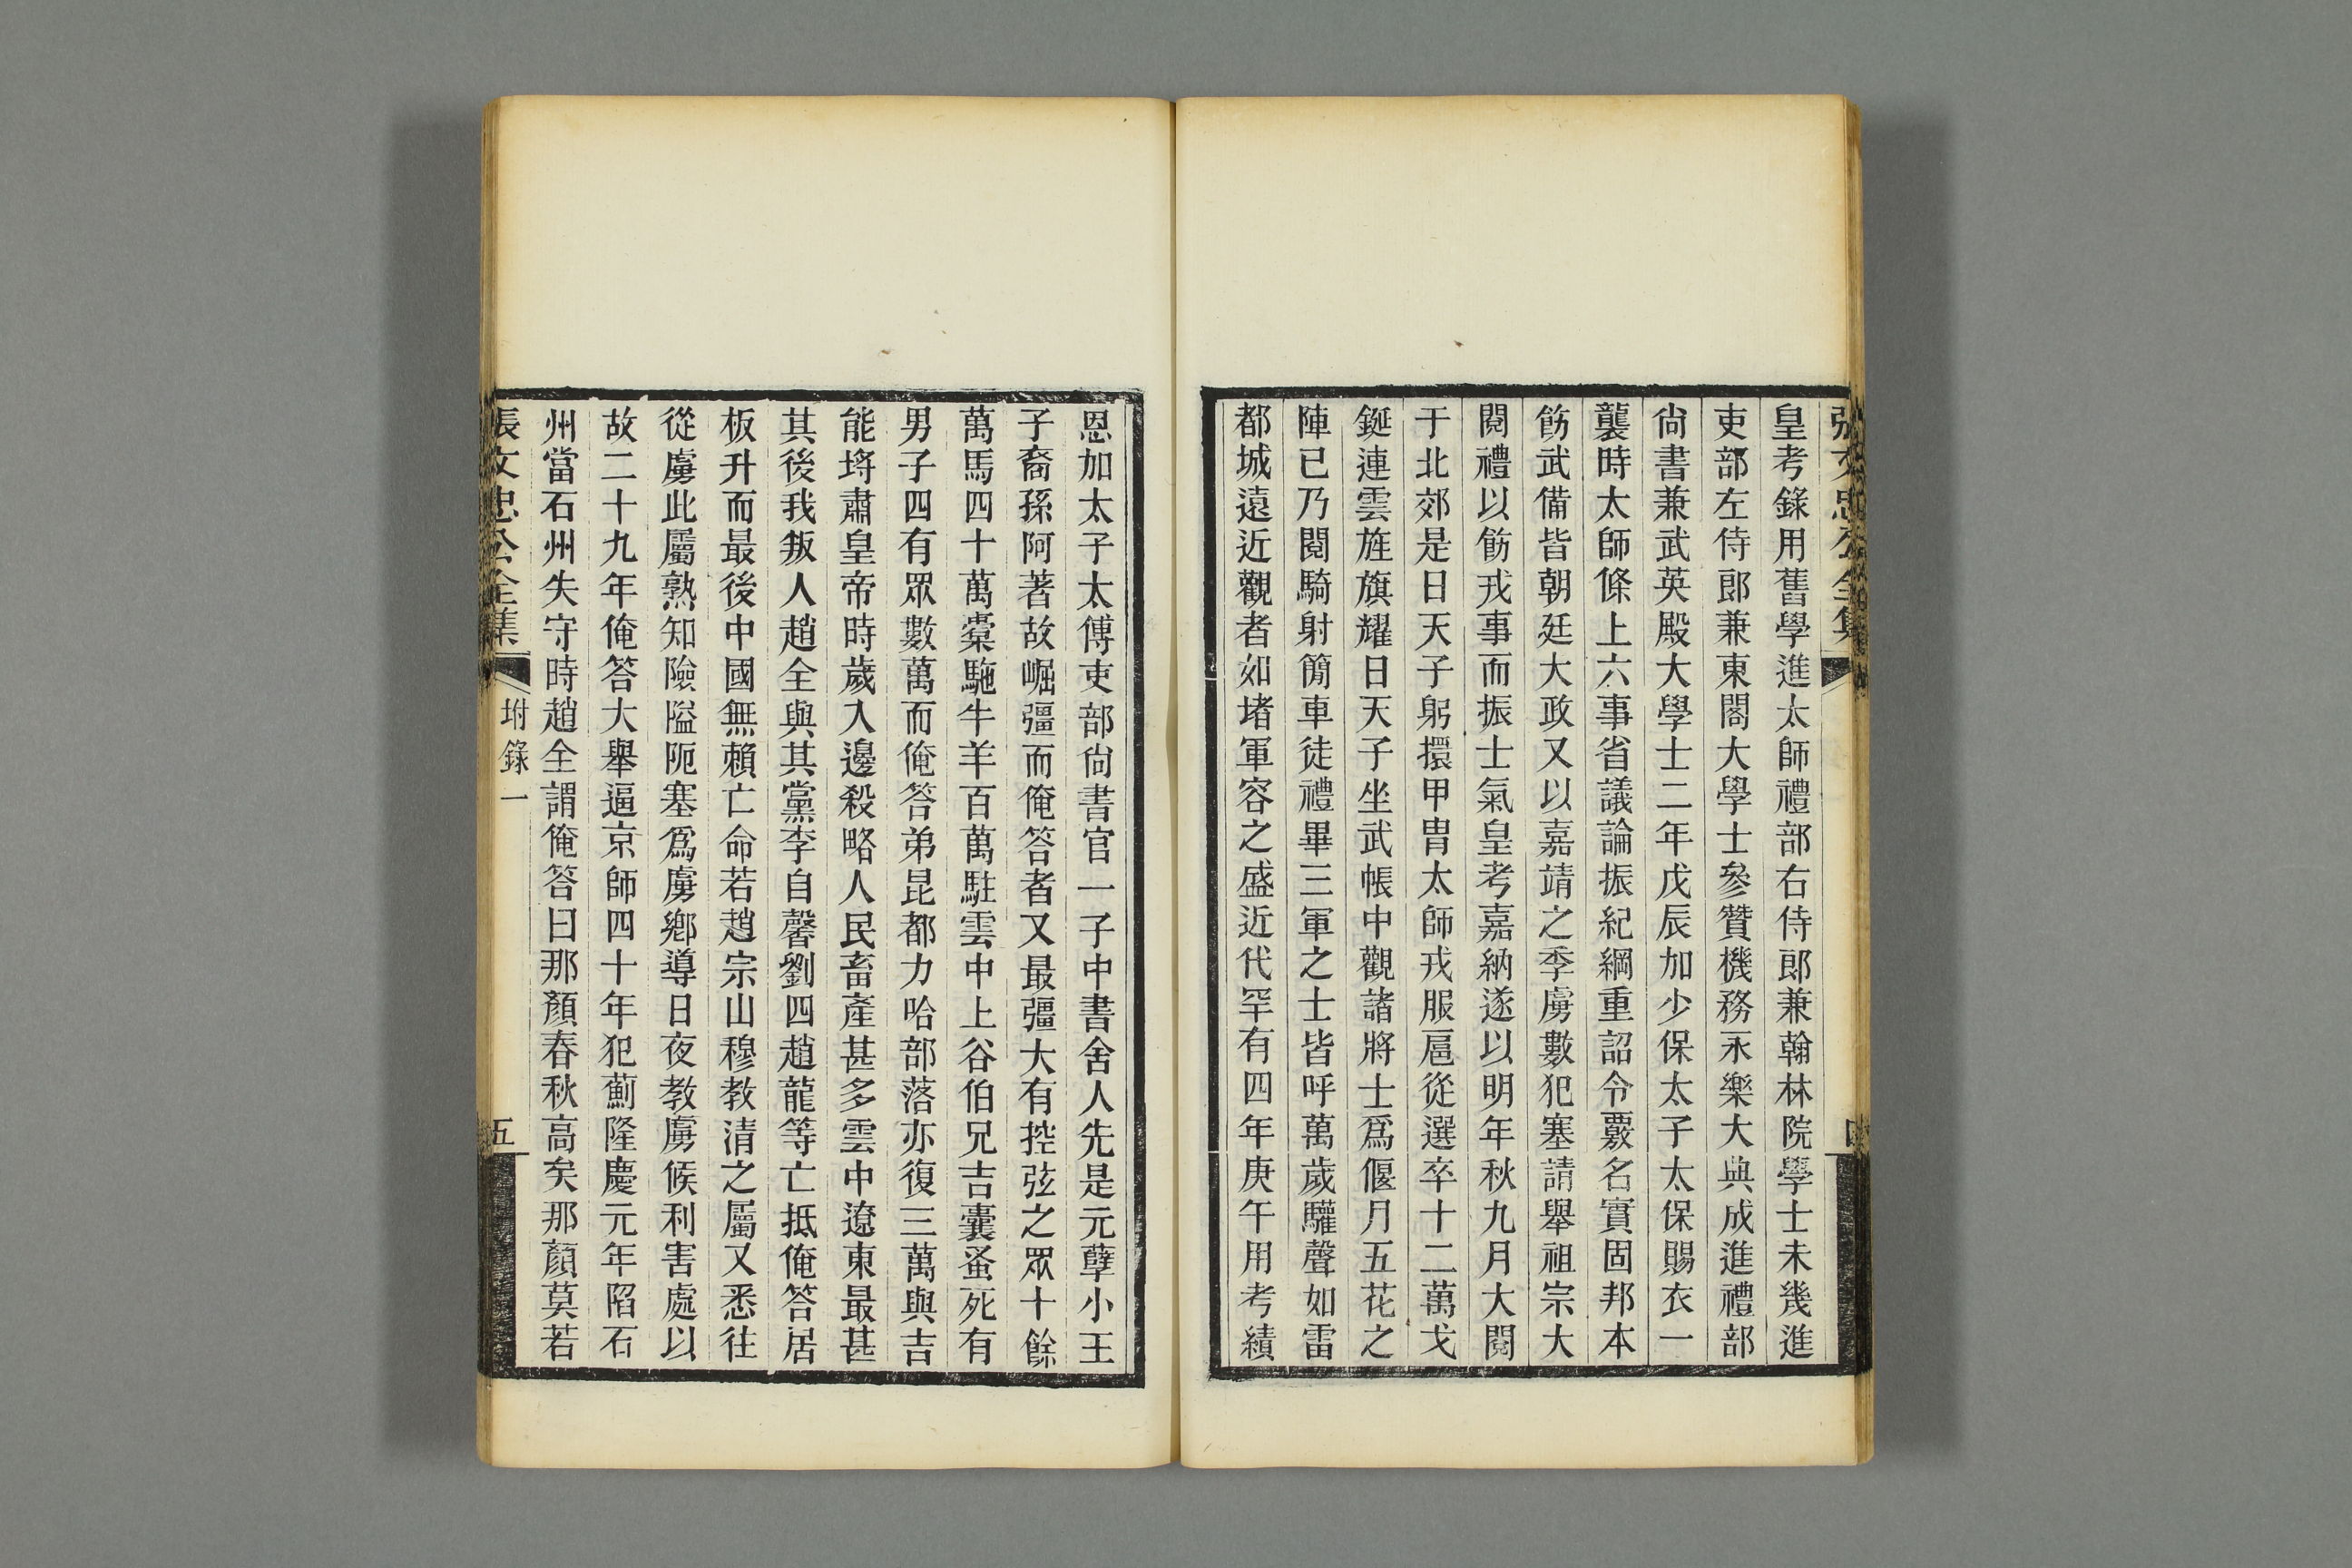 張文忠公全集
皇考錄用舊學進太師禮部右侍郎兼翰林院學士未幾進
吏部左侍郎兼東閣大學士參贊機務永樂大典成進禮部
尙書兼武英殿大學士二年戊辰加少保太子太保賜衣一
襲時太師條上六事省議論振紀綱重詔令覈名實固邦本
飭武備皆朝廷大政又以嘉靖之季虜數犯塞請舉祖宗大
閱禮以飭戎事而振士氣皇考嘉納遂以明年秋九月大閱
于北郊是日天子躬擐甲冑太師戎服扈從選卒十二萬戈
鋋連雲旌旗耀日天子坐武帳中觀諸將士爲偃月五花之
陣已乃閱騎射簡車徒禮畢三軍之士皆呼萬歲驩聲如雷
都城遠近觀者如堵軍容之盛近代罕有四年庚午用考績
恩加太子太傅吏部尙書官一子中書舍人先是元孽小王
子裔孫阿著故崛彊而俺答者又最彊大有控弦之眾十餘
萬馬四十萬槖駞牛羊百萬駐雲中上谷伯兄吉囊蚤死有
男子四有眾數萬而俺答弟昆都力哈部落亦復三萬與吉
能埒肅皇帝時歲入邊殺略人民畜產甚多雲中遼東最甚
其後我叛人趙全與其黨李自馨劉四趙龍等亡抵俺答居
板升而最後中國無賴亡命若趙宗山穆教清之屬又悉往
從虜此屬熟知險隘阨塞爲虜鄉導日夜教虜候利害處以
故二十九年俺答大舉逼京師四十年犯薊隆慶元年陷石
州當石州失守時趙全謂俺答曰那顏春秋高矣那顏莫若
張文忠公全集
坿錄一
五